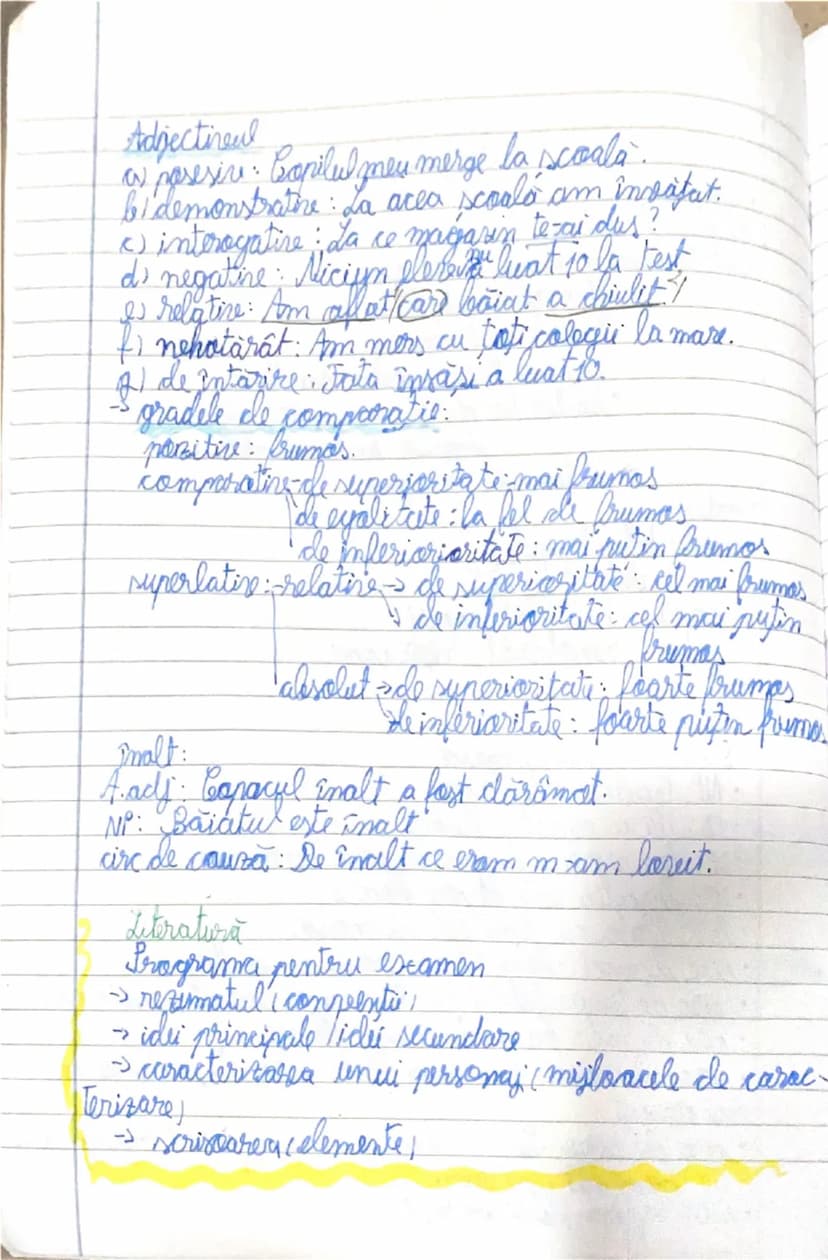 Adjectivul
a) posesiv: Copilul meu merge la școală.
b) demonstrativ: La acea școală am învățat.
c) interogativ: La ce magazin te-ai dus?
d) negativ: Niciun elev nu a luat 10 la test
e) relativ: Am aflat care băiat a chiulit.
f) nehotărât: Am mers cu toți colegii la mare.
g) de întărire: Fata însăși a luat 10.
→ gradele de comparație:
pozitiv: frumos.
comparativ-de superioritate-mai frumos
de egalitate: la fel de frumos
de inferiorioritate: mai puțin frumos
superlativ:-relativ → de superioritate: cel mai frumos
↳ de inferioritate: cel mai puțin
frumos
absolut → de superioritate: foarte frumos
de inferioritate: foarte puțin frumos
înalt:
A.adj: Copacul înalt a fost dărâmat.
NP: Băiatul este înalt
circ de cauză: De înalt ce eram m-am lovit.
Literatură
Programa pentru examen
→ rezumatul (
→ idei principale / idei secundare
→ caracterizarea unui personaj (mijloacele de carac-
terizare)
→ scrisoarea (elemente)